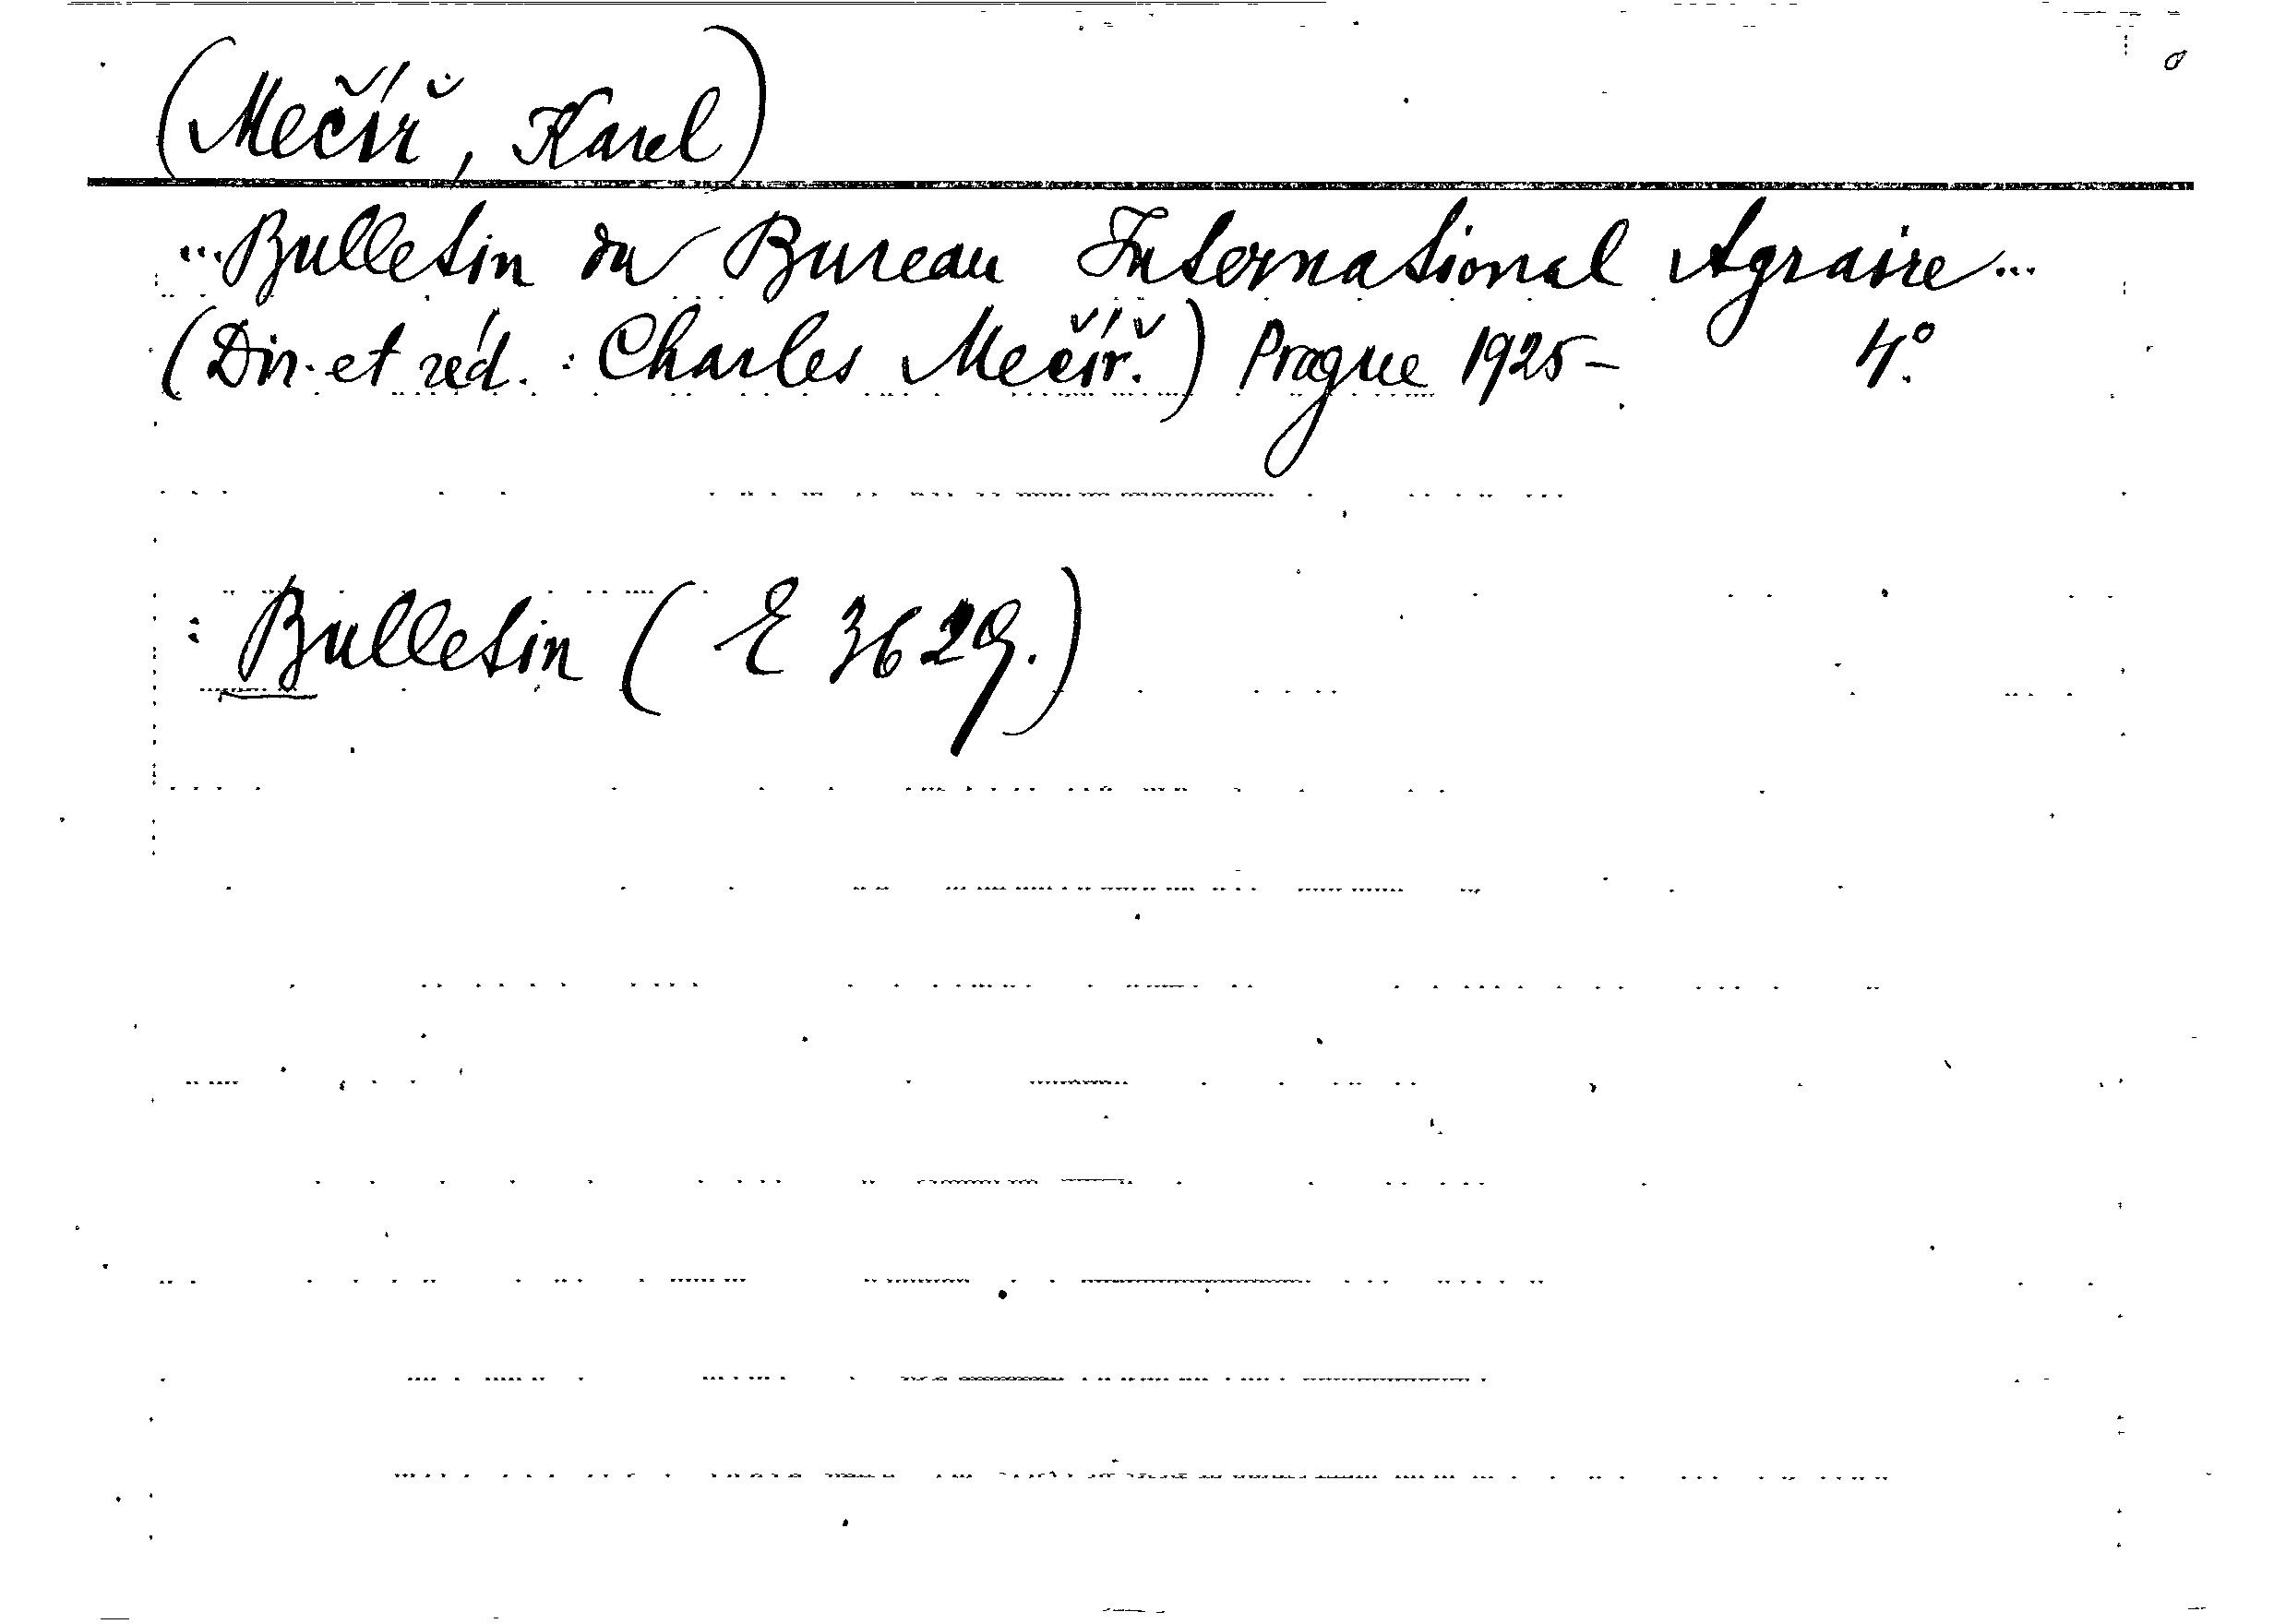 (Mečíř, Karel)
...Bulletin du Bureau International Agraire...
(Dir. et réd. : Charles Mečíř.) Prague 1925- 4°.
: Bulletin (E 3629.)